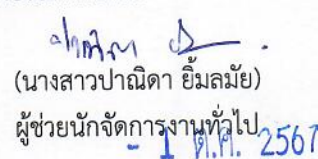 (นางสาวปาณิดา ยิ้มลมัย)
ผู้ช่วยนักจัดการงานทั่วไป
- 1 ต.ค. 2567